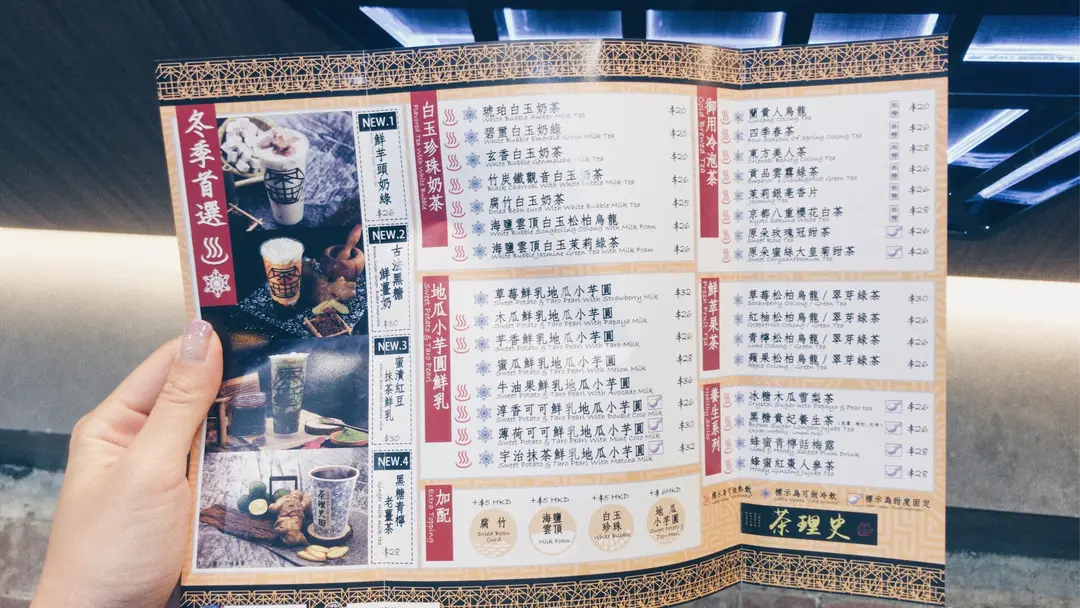 冬季首選
NEW.1
鮮芋頭奶綠
$26
NEW.2
古法黑糖
鮮薑奶
$30
NEW.3
蜜漬紅豆
抹茶鮮乳
$30
NEW.4
黑糖青檸
老薑茶
$28
白玉珍珠奶茶
Flavored Tea With White Bubble
琥珀白玉奶茶 $20
White Bubble Amber Milk Tea
碧麗白玉奶綠 $20
White Bubble Emerald Green Milk Tea
玄香白玉奶茶 $20
White Bubble Genmaicha Milk Tea
竹炭鐵觀音白玉奶茶 $26
Black Charcoal With White Bubble Milk Tea
腐竹白玉奶茶 $25
Dried Bean curd With White Bubble Milk Tea
海鹽雲頂白玉松柏烏龍 $26
White Bubble Songboling Oolong Tea With Milk Foam
海鹽雲頂白玉茉莉綠茶 $26
White Bubble Jasmine Green Tea with Milk Foam
地瓜小芋圓鮮乳
Sweet Potato & Taro Pearl
草莓鮮乳地瓜小芋圓 $32
Sweet Potato & Taro Pearl With Strawberry Milk
木瓜鮮乳地瓜小芋圓 $28
Sweet Potato & Taro Pearl With Papaya Milk
芋香鮮乳地瓜小芋圓
Sweet Potato & Taro Pearl With Taro Milk
蜜瓜鮮乳地瓜小芋圓 $28
Sweet Potato & Taro Pearl With Melon Milk
牛油果鮮乳地瓜小芋圓 $36
Sweet Potato & Taro Pearl With Avocado Milk
淳香可可鮮乳地瓜小芋圓 $26
Sweet Potato & Taro Pearl With Double Coco Milk
薄荷可可鮮乳地瓜小芋圓 $30
Sweet Potato & Taro Pearl With Mint Coco Milk
宇治抹茶鮮乳地瓜小芋圓 $32
Sweet Potato & Taro Pearl With Matcha Milk
加配
Extra Topping
+$5 HKD
腐竹
Dried Bean Curd
+$5 HKD
海鹽雲頂
Milk Foam
+$5 HKD
白玉珍珠
White Bubble
+$6 HKD
地瓜小芋圓
Sweet Potato & Taro Pearl
御用冷泡茶
Cold Brewed Tea
蘭貴人烏龍 $20
Ginseng Oolong Tea
四季春茶 $26
Four Seasons Of Spring Oolong Tea
東方美人茶 $28
Oriental Beauty Oolong Tea
貢品雲霧綠茶 $26
茉莉銀毫香片 $26
Jasmine Tea
京都八重櫻花白茶 $28
Kyoto Sakura White Tea
原朵玫瑰冠甜茶 $26
Sweet Rose Tea
原朵蜜絲大皇菊甜茶 $28
Sweet Chrysanthemum Tea
鮮萃果茶
Fresh Fruit Tea
草莓松柏烏龍 / 翠芽綠茶 $30
Strawberry Oolong / Green Tea
紅柚松柏烏龍 / 翠芽綠茶 $26
Grapefruit Oolong / Green Tea
青檸松柏烏龍 / 翠芽綠茶 $26
Lime Oolong / Green Tea
蘋果松柏烏龍 / 翠芽綠茶 $26
Apple Oolong / Green Tea
養生系列
冰糖木瓜雪梨茶 $26
Crystal Sugar with Papaya & Pear tea
黑糖貴妃養生茶 $26
蜂蜜青檸話梅露 $28
Lime & Honey Salted Plum Drink
蜂蜜紅棗人參茶 $28
Honey Ginseng Jujube Tea
標示為可做熱飲
標示為可做冷飲
標示為甜度固定
茶理史